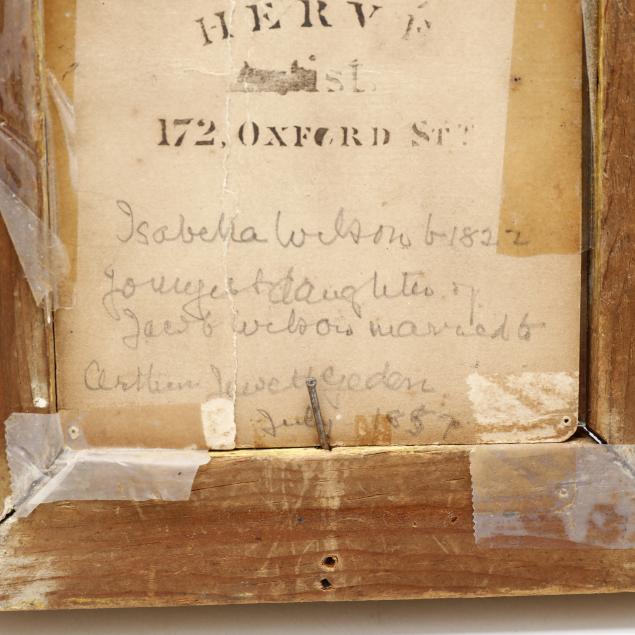 HERVÉ
Artist.
172, OXFORD STT
Isabella Wilson b 1822
youngest daughter of
Jacob Wilson married to
Arthur Jewitt Geden
July 1857